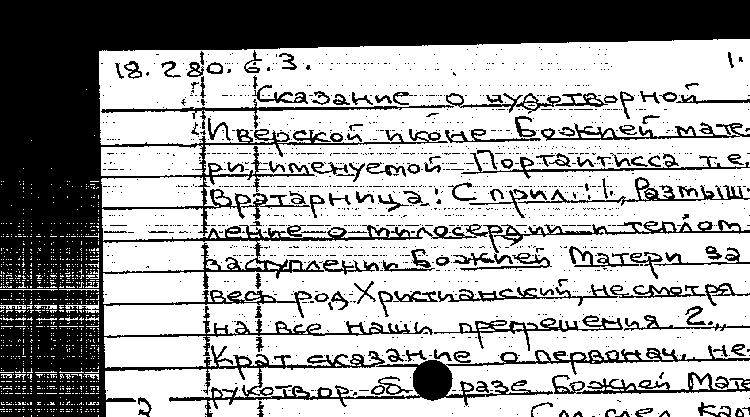 18.280.6.3. 1.
Сказание о чудотворной
Иверской иконе Божией мате-
ри, именуемой Портаитисса т.е.
Вратарница: С прил.: 1., Размыш-
ление о милосердии и теплом
заступлении Божией Матери за
весь род Христианский, не смотря
на все наши прегрешения 2.,,
Крат. сказание о первонач. не-
рукотвор. об разе Божией Мате
2 См. след. кар